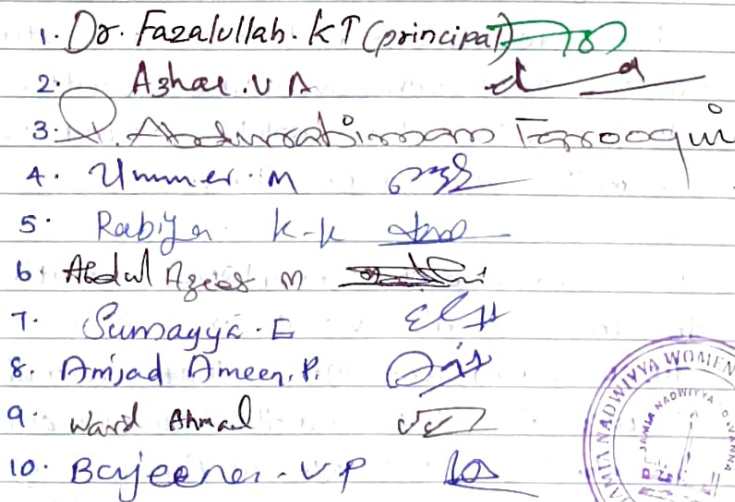 1. Dr. Fazalullah. KT (principal)
2. Azhar. V A
3. Abdurrahiman Farooqui
4. Ummer. M
5. Rabiya K-K
6. Abdul Azees M
7. Sumayya. E
8. Amjad Ameen. P.
9. Ahmad
10. V P
JAMIA NADWIYYA WOMEN
JAMIA NADWIYYA